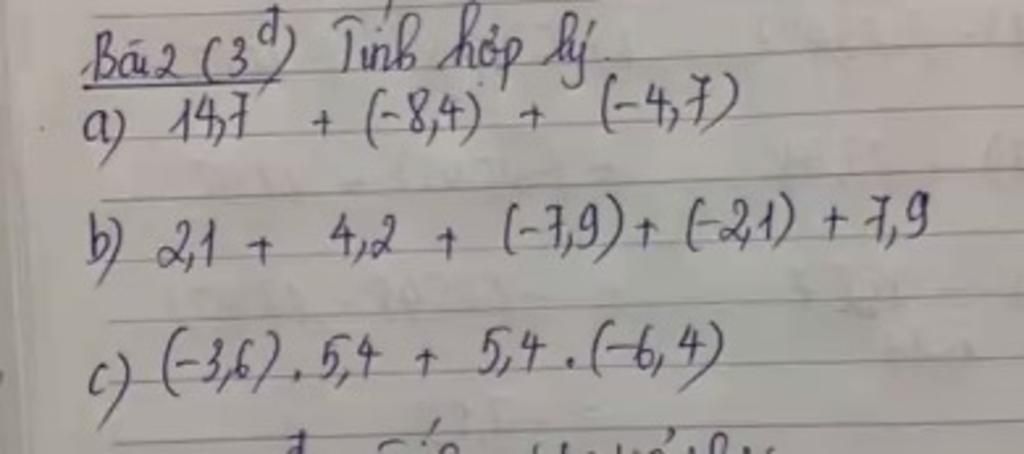 Bài 2 (3đ) Tính hợp lý
a) 14,7 + (-8,4) + (-4,7)
b) 2,1 + 4,2 + (-7,9) + (-2,1) + 7,9
c) (-3,6) . 5,4 + 5,4 . (-6,4)